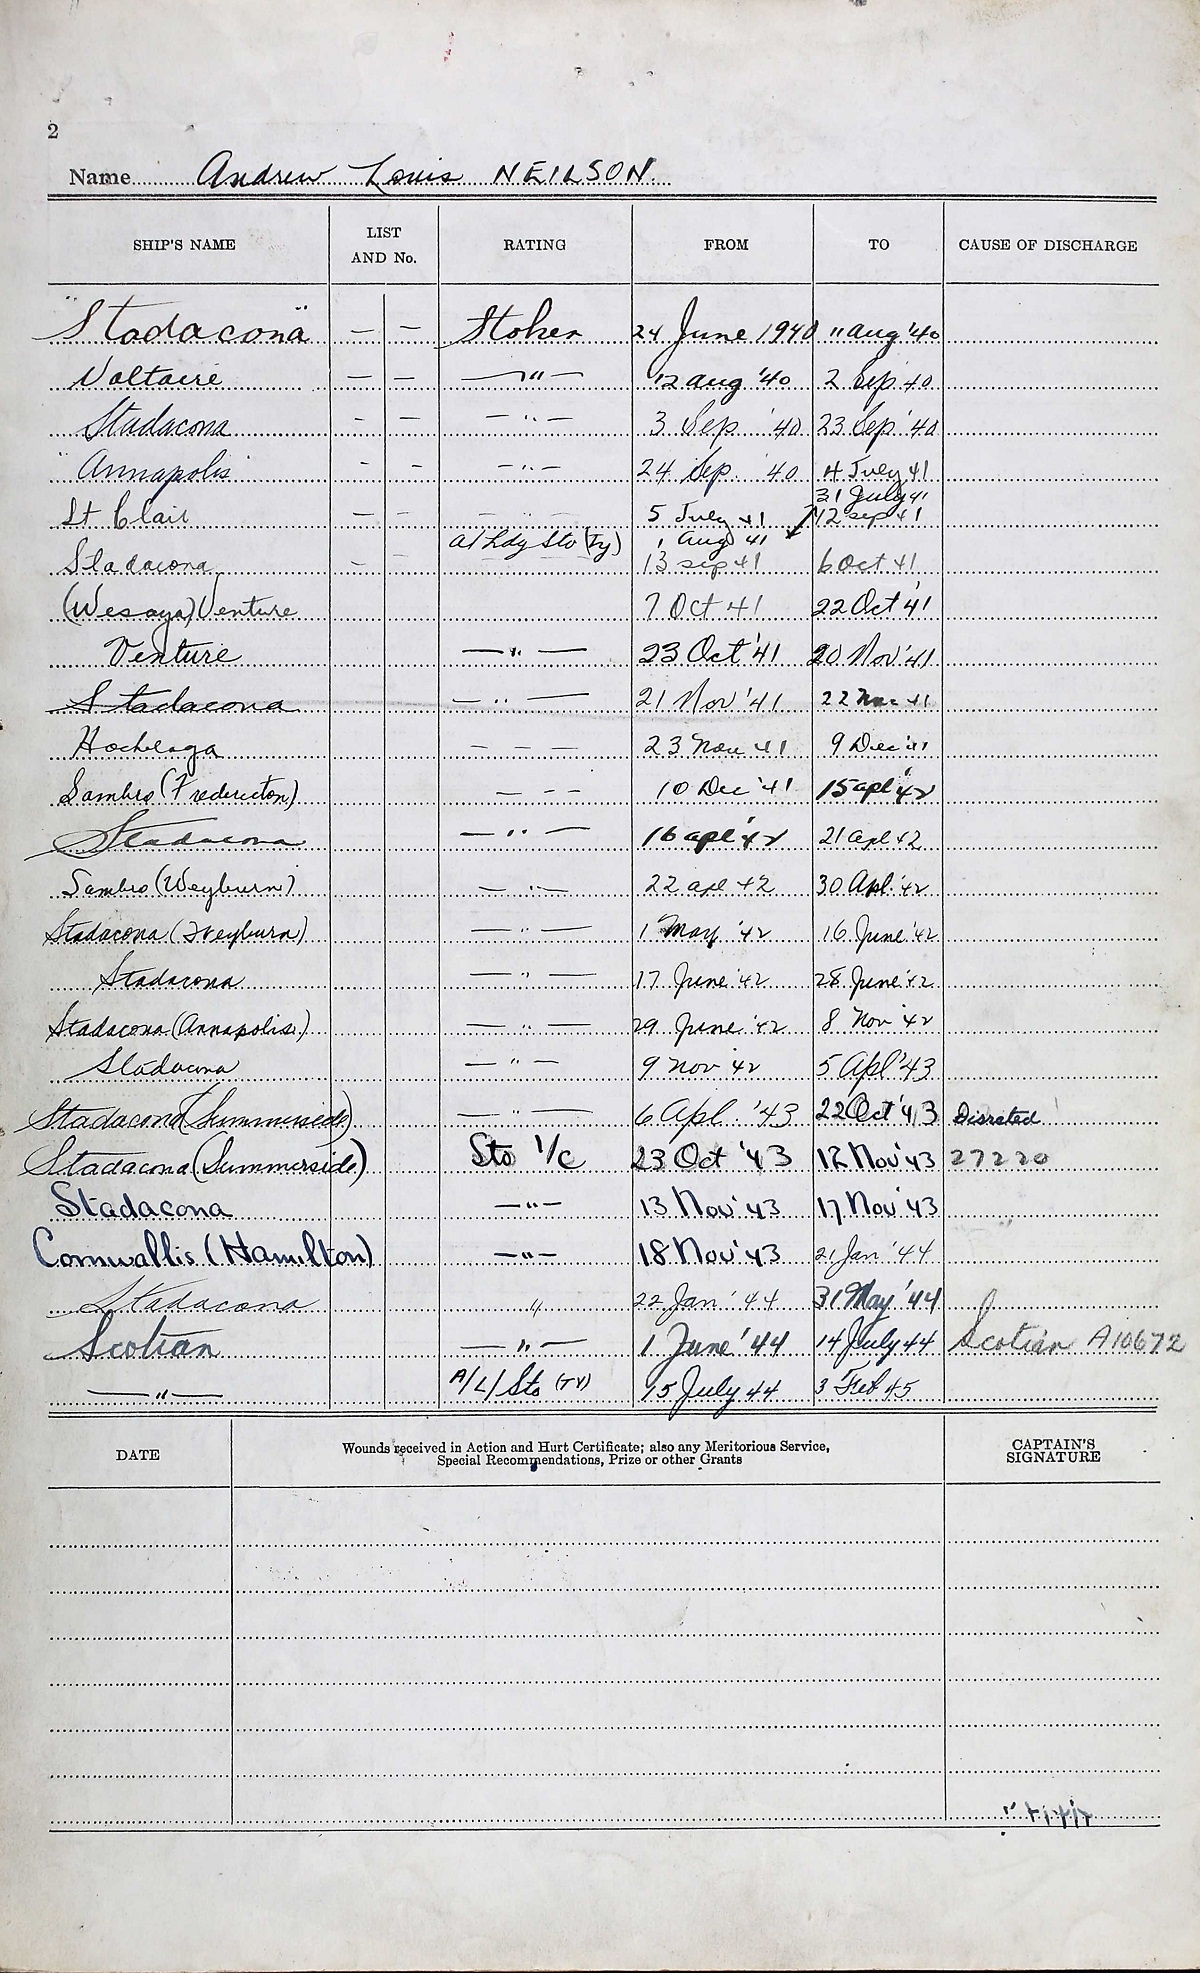 2
Name Andrew Louis NEILSON.
SHIP'S NAME LIST AND No. RATING FROM TO CAUSE OF DISCHARGE
"Stadacona" — — Stoker 24 June 1940 11 aug '40
Voltaire — — —"— 12 aug '40 2 Sep '40
Stadacona — — —"— 3 Sep '40 23 Sep '40
"Annapolis" — — —"— 24 Sep '40 4 July 41
31 July 41
St Clair — — —"— 5 July 41 12 sep 41
a/Ldg Sto (Ty) 1 Aug 41
Stadacona — — 13 sep 41 6 Oct 41
(Wesaga) Venture 7 Oct 41 22 Oct '41
Venture —"— 23 Oct '41 20 Nov '41
Stadacona —"— 21 Nov '41 22 Nov 41
Hochelaga — — — 23 Nov 41 9 Dec '41
Sambro (Fredericton) — — — 10 Dec '41 15 apl '42
Stadacona —"— 16 apl '42 21 apl 42
Sambro (Weyburn) —"— 22 apl 42 30 Apl. '42
Stadacona (Weyburn) —"— 1 May '42 16 June '42
Stadacona —"— 17 June '42 28 June '42
Stadacona (Annapolis) —"— 29 June '42 8 Nov '42
Stadacona —"— 9 Nov '42 5 Apl '43
Stadacona (Summerside) —"— 6 Apl. '43 22 Oct '43 Disrated
Stadacona (Summerside) Sto 1/c 23 Oct '43 12 Nov '43 27220
Stadacona —"— 13 Nov '43 17 Nov '43
Cornwallis (Hamilton) —"— 18 Nov '43 21 Jan '44
Stadacona " 22 Jan '44 31 May '44
Scotian —"— 1 June '44 14 July 44 Scotian A10672
—"— A/L/Sto (TY) 15 July 44 3 Feb 45
DATE Wounds received in Action and Hurt Certificate; also any Meritorious Service, CAPTAIN'S
Special Recommendations, Prize or other Grants SIGNATURE